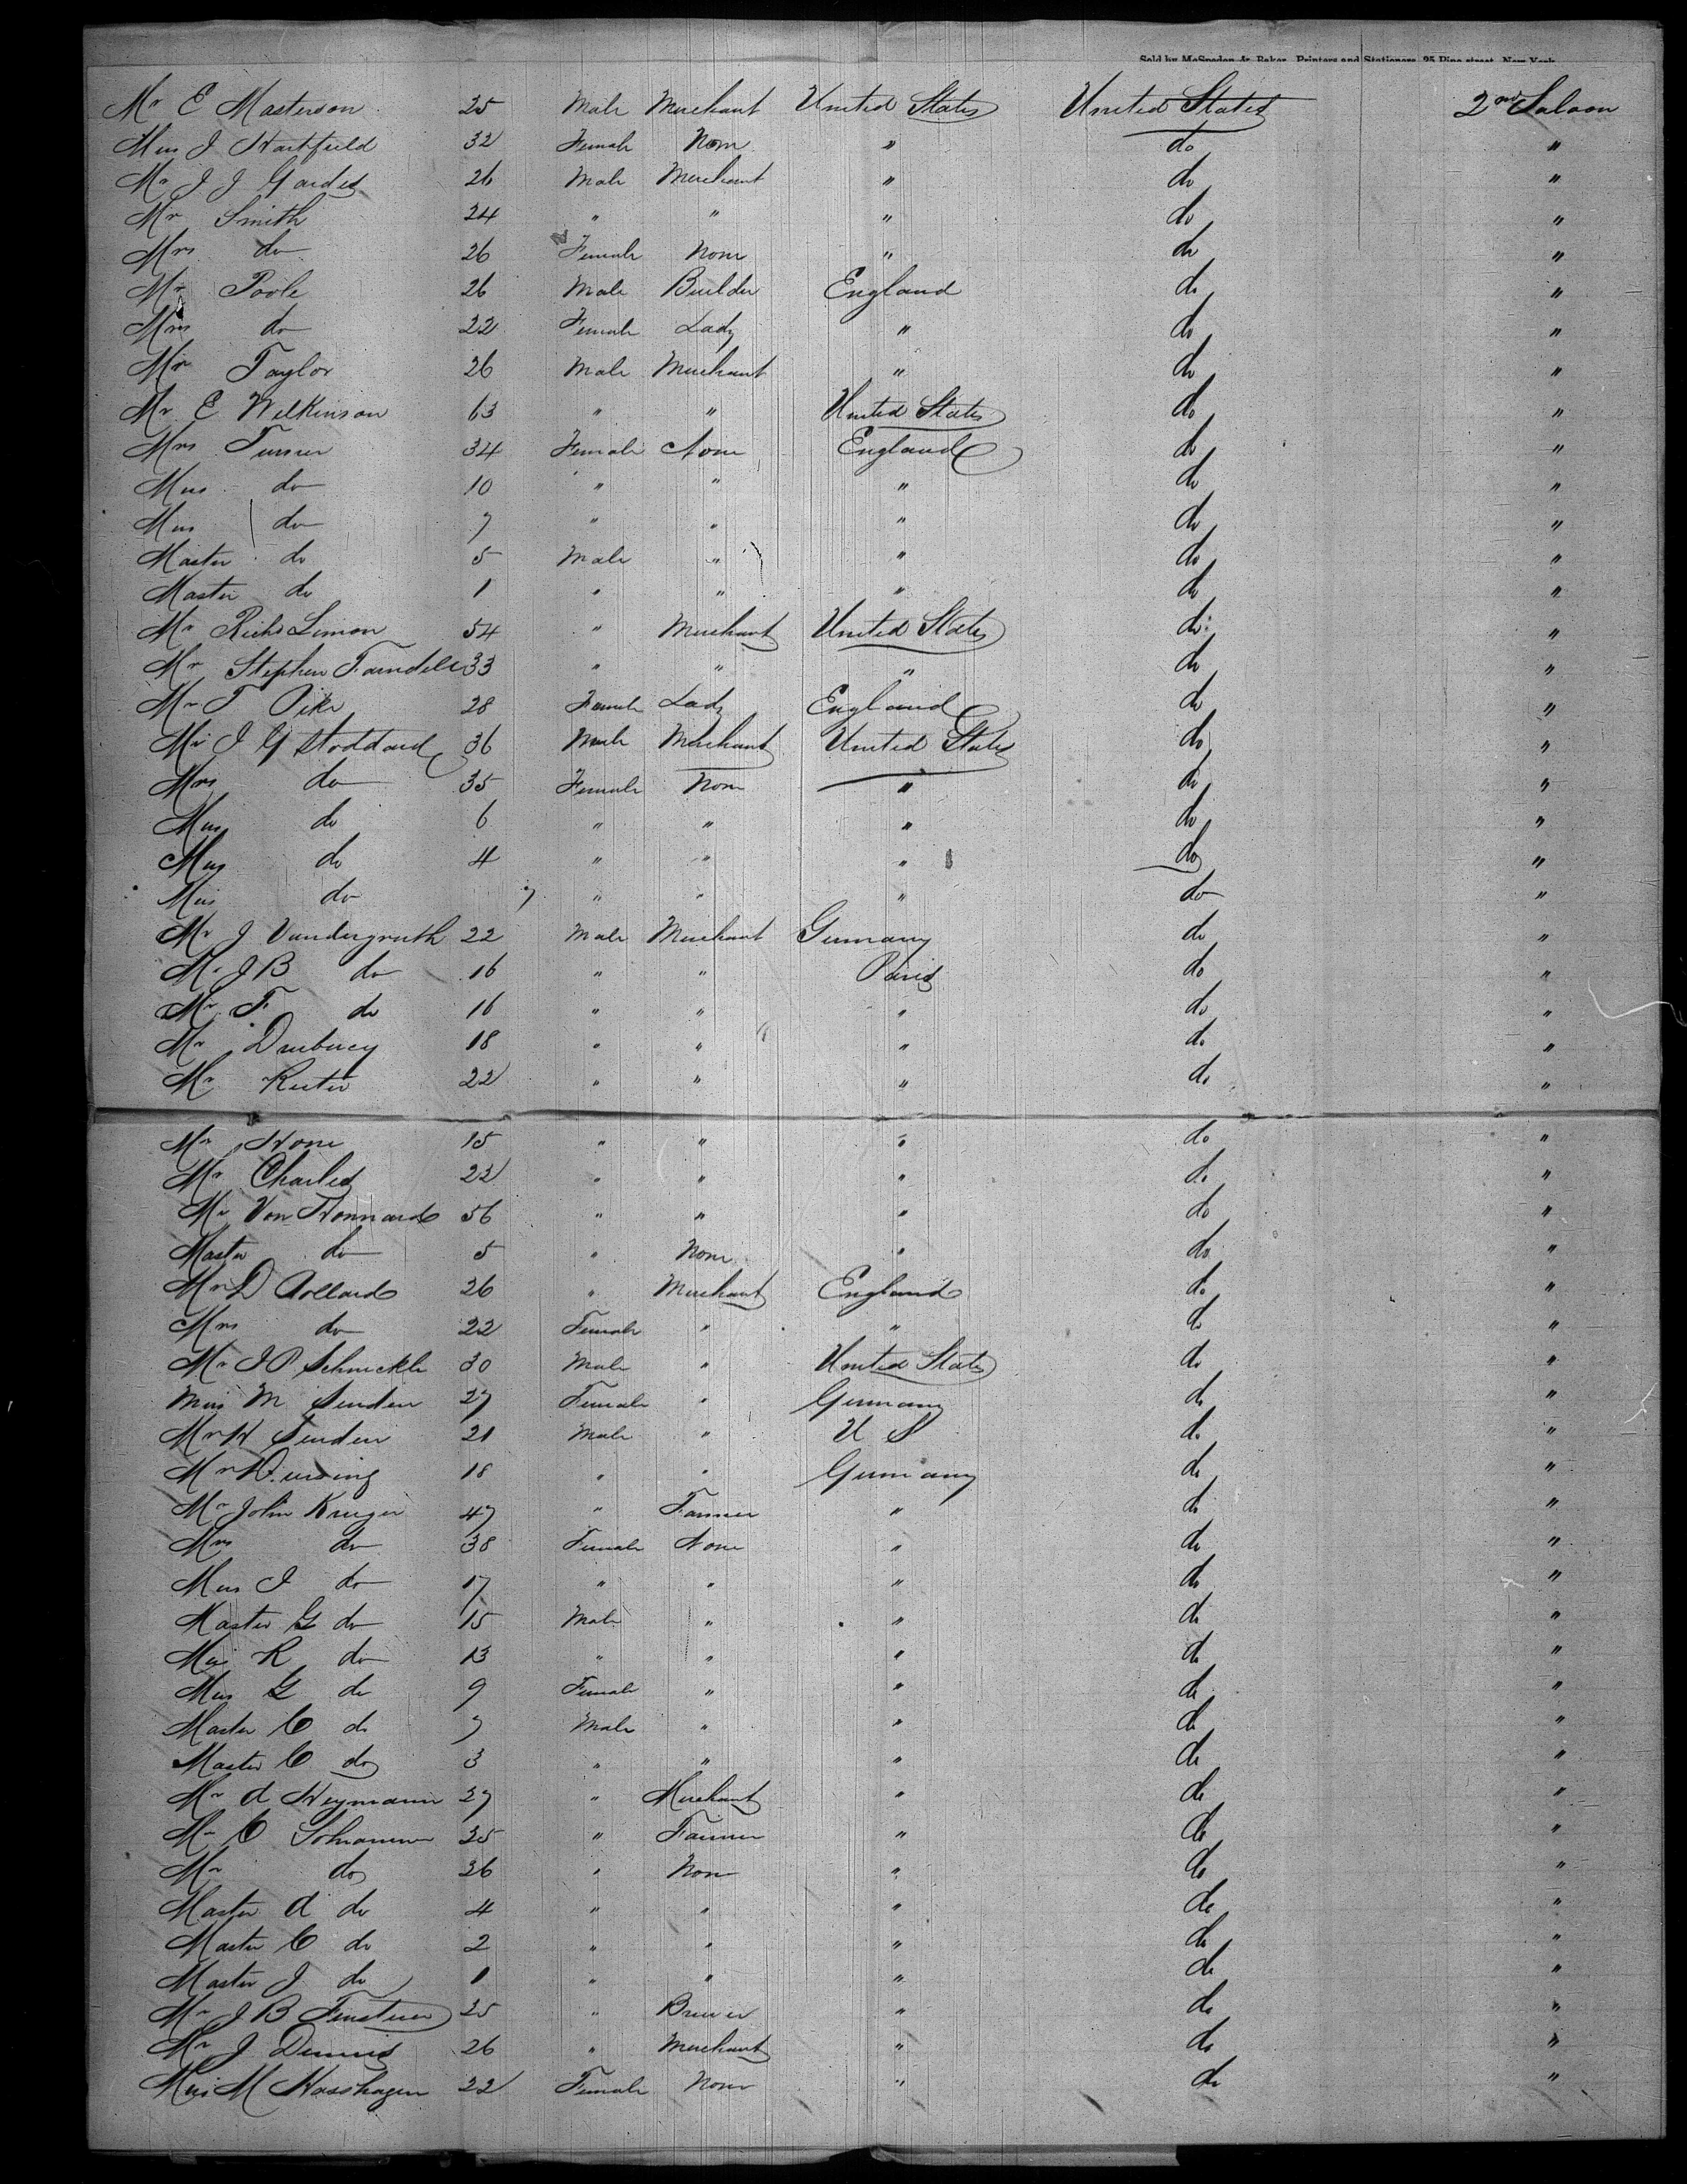 Sold by McSpedon & Baker, Printers and Stationers, 25 Pine street, New York
Mr E Masterson 25 Male Merchant United States United States 2nd Saloon
Miss J Hartfield 32 Female None " do "
Mr J J Gardes 26 Male Merchant " do "
Mr Smith 24 " " " do "
Mrs do 26 Female None " do "
Mr Poole 26 Male Builder England do "
Mrs do 22 Female Lady " do "
Mr Taylor 26 Male Merchant " do "
Mr E Wilkinson 63 " " United States do "
Mrs Turner 34 Female None England do "
Miss do 10 " " " do "
Miss do 7 " " " do "
Master do 5 Male " " do "
Master do 1 " " " do "
Mr Richd Limon 54 " Merchant United States do "
Mr Stephen 33 " " " do "
Mr T Pike 28 Female Lady England do "
Mr J G Stoddard 36 Male Merchant United States do "
Mrs do 35 Female None " do "
Miss do 6 " " " do "
Miss do 4 " " " do "
Miss do 7 " " " do "
Mr J Vandergruth 22 Male Merchant Germany do "
Mr J B do 16 " " Paris do "
Mr F do 16 " " " do "
Mr 18 " " " do "
Mr 22 " " " do "
Mr Horn 15 " " " do "
Mr Charles 22 " " " do "
Mr Von 56 " " " do "
Master do 5 " None " do "
Mr D 26 " Merchant England do "
Mrs do 22 Female " " do "
Mr J P Schnuckle 30 Male " United States do "
Miss M Senden 27 Female " Germany do "
Mr H Senden 21 Male " U S do "
Mr 18 " " Germany do "
Mr John Kruger 47 " Farmer " do "
Mrs do 38 Female None " do "
Miss J do 17 " " " do "
Master G do 15 Male " " do "
Miss R do 13 " " " do "
Miss G do 9 Female " " do "
Master C do 7 Male " " do "
Master C do 3 " " " do "
Mr A Heymann 27 " Merchant " do "
Mr C 25 " Farmer " do "
Mr do 26 " None " do "
Master A do 4 " " " do "
Master C do 2 " " " do "
Master J do 1 " " " do "
Mr J B 25 " Brewer " do "
Mr J Dennis 26 " Merchant " do "
Miss M Hosshagen 22 Female None " do "